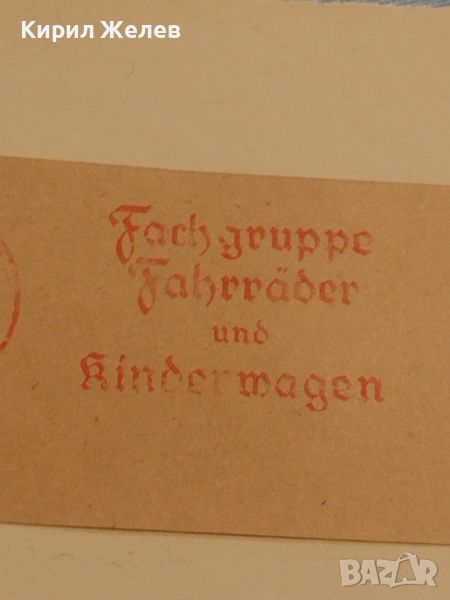 Кирил Желев
Fachgruppe
Fahrräder
und
Kinderwagen
BAZAR